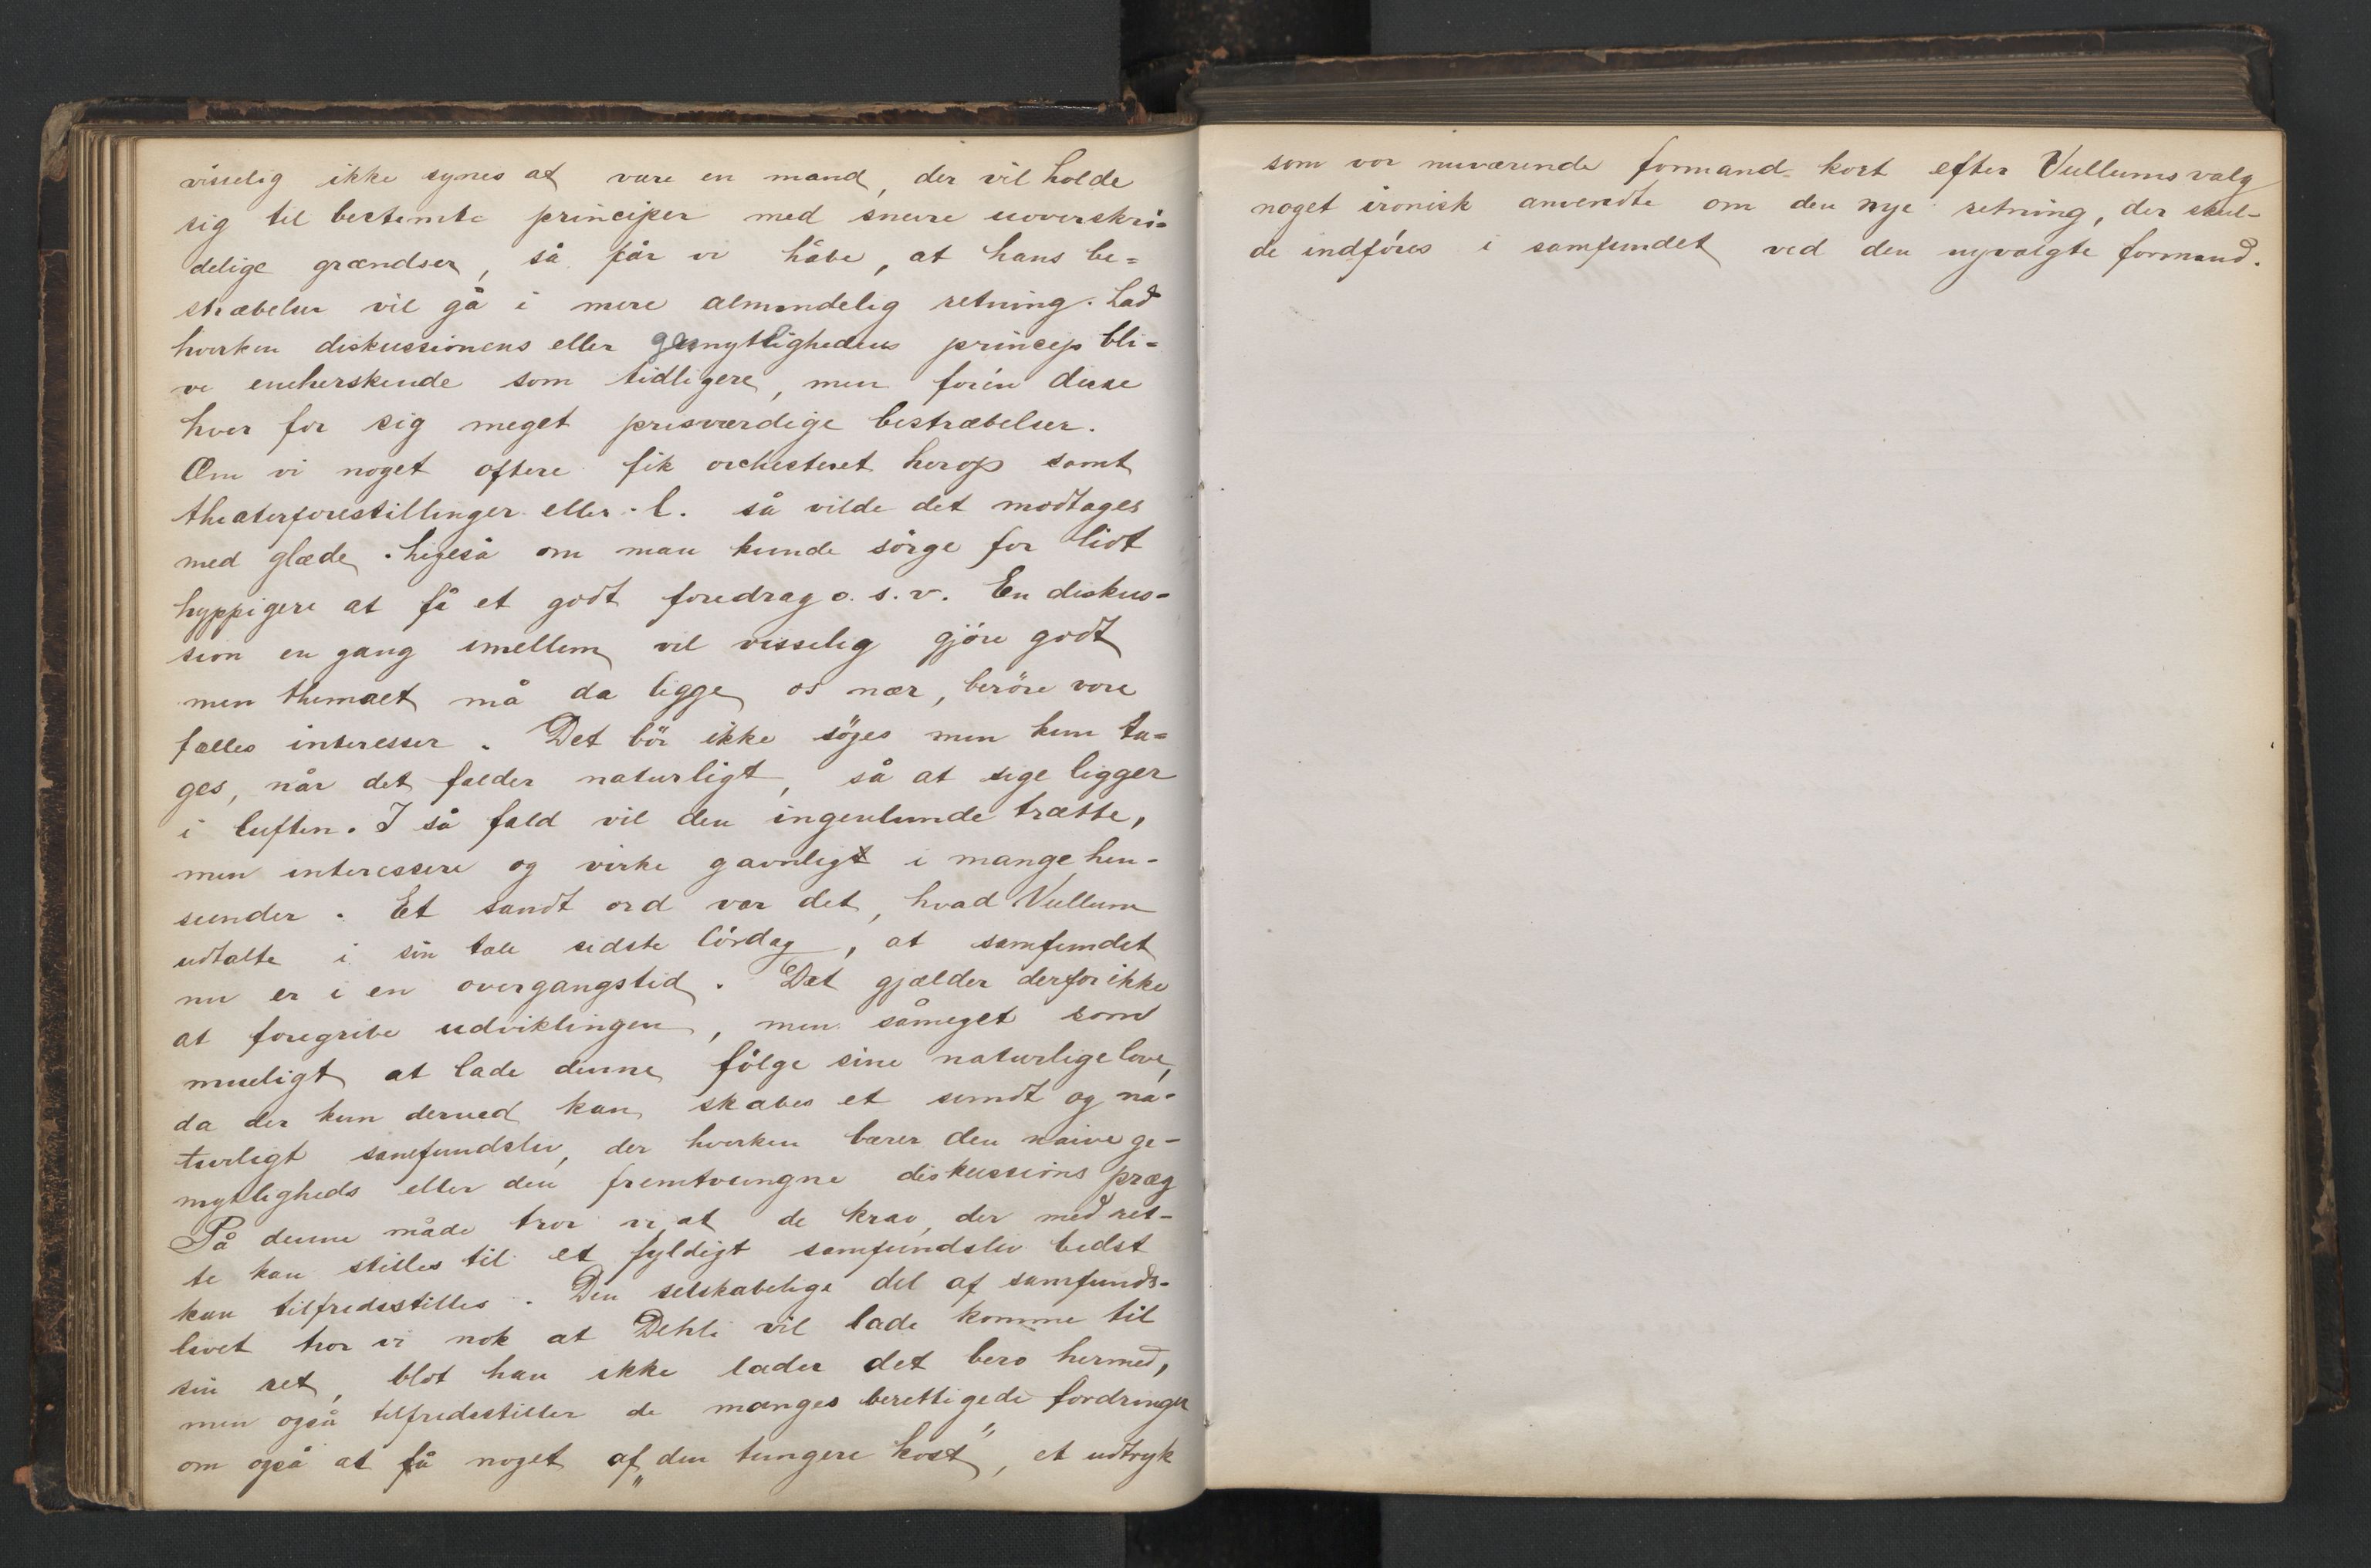 visselig ikke synes at være en mand, der vil holde
sig til bestemte principer med snevre uoverskri-
delige grændser, så får vi håbe, at hans be=
stræbelser vil gå i mere almindelig retning. Lad
hverken diskussionens eller gemytlighedens princip bli=
ve eneherskende som tidligere, men forén disse
hver for sig meget prisværdige bestræbelser.
Om vi noget oftere fik orchesteret herop samt
theaterforestillinger eller l. så vilde det modtages
med glæde. Ligeså om man kunde sörge for lidt
hyppigere at få et godt foredrag o. s. v. En diskus-
sion en gang imellem vil visselig gjöre godt
men themaet må da ligge os nær, beröre vore
fælles interesser. Det bör ikke söges men kun ta=
ges, når det falder naturligt, så at sige ligger
i luften. I så fald vil den ingenlunde trætte,
men interessere og virke gavnligt i mange hen-
seender. Et sandt ord var det, hvad Vullum
udtalte i sin tale sidste lördag, at samfundet
nu er i en overgangstid. Det gjælder derfor ikke
at foregribe udviklingen, men såmeget som
mueligt at lade denne fölge sine naturlige love,
da der kun derved kan skabes et sundt og na-
turligt samfundsliv, der hverken bærer den naive ge-
mytligheds eller den fremtvungne diskussions præg
På denne måde tror vi at de krav, der med ret-
te kan stilles til et fyldigt samfundsliv bedst
kan tilfredsstilles. Den selskabelige del af samfunds-
livet tror vi nok at Dehli vil lade komme til
sin ret, blot han ikke lader det bero hermed,
men også tilfredsstiller de manges berettigede fordringer
om også at få noget af „den tungere kost", et udtryk
som vor nuværende formand kort efter Vullums valg
noget ironisk anvendte om den nye retning, der skul-
de indföres i samfundet ved den nyvalgte formand.